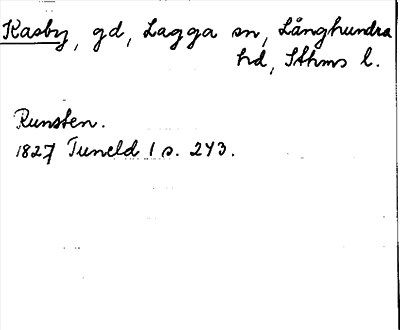 Kasby, gd, Lagga sn, Långhundra
hd, Sthms l.
Runsten.
1827 Tuneld 1 s. 243.